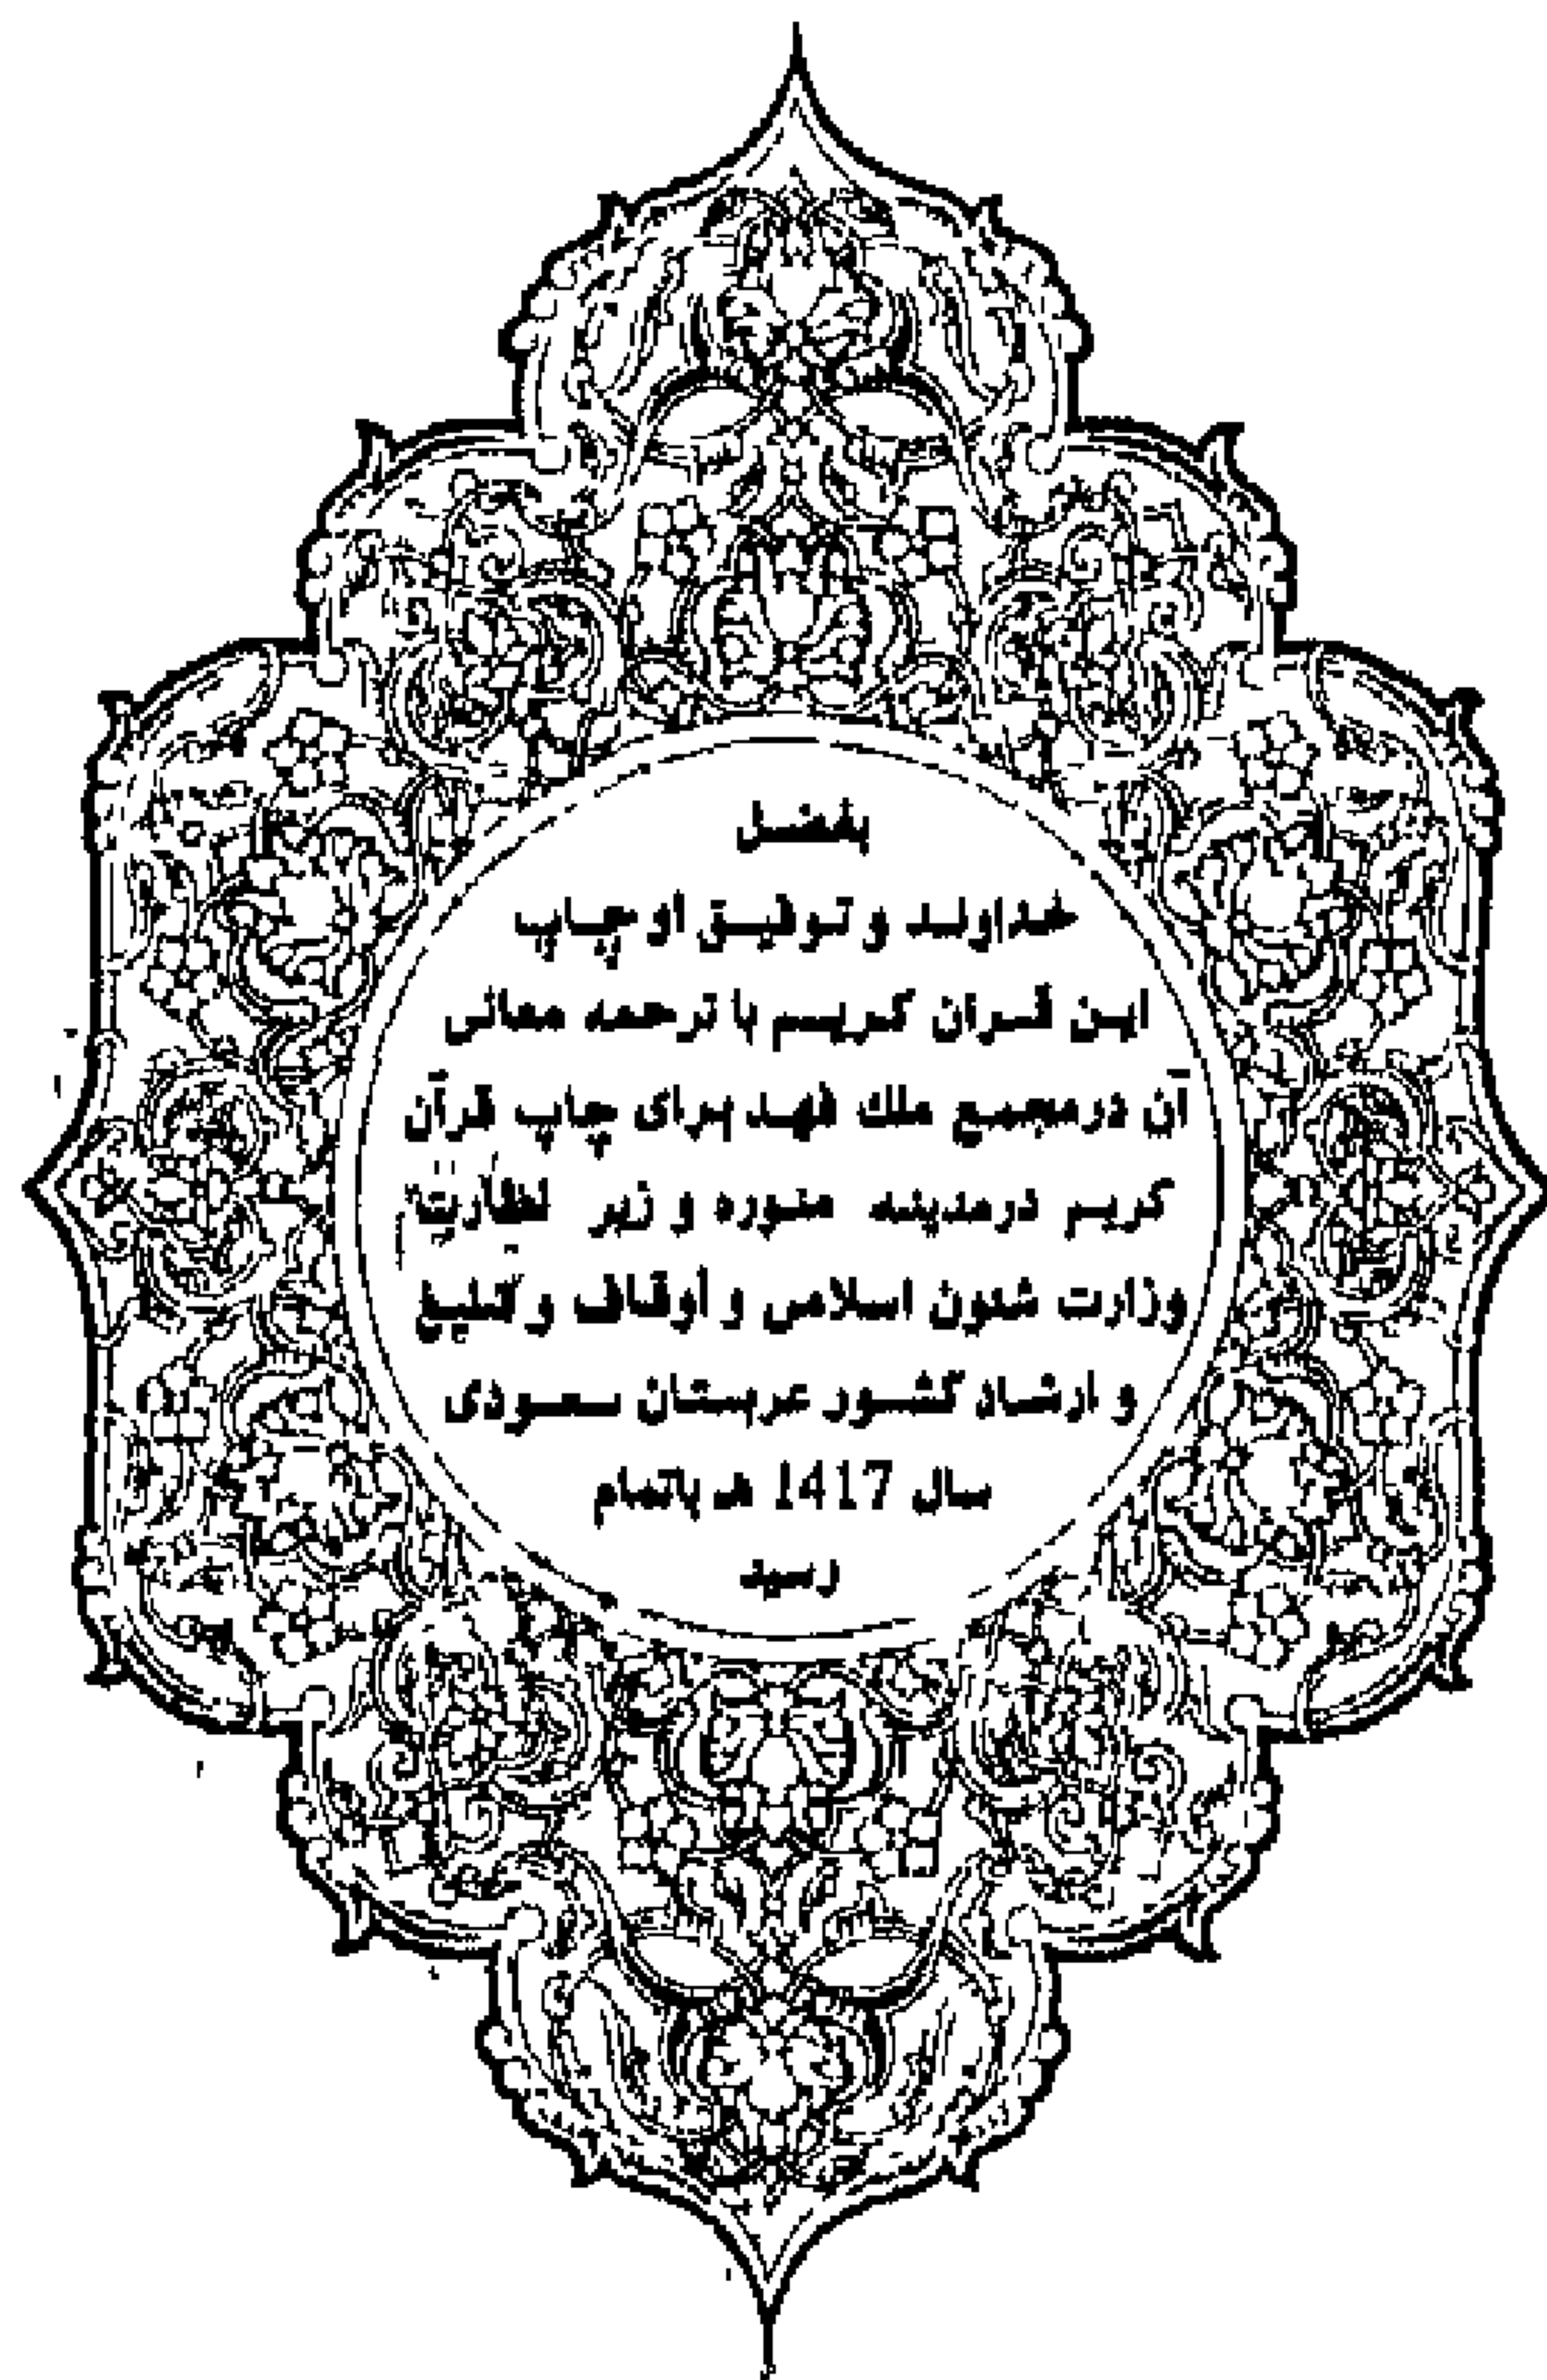 بفضل
خداوند و توفیق او چاپ
این قرآن کریم با ترجمه معانی
آن در مجمع ملك فهد برای چاپ قرآن
کریم در مدینه منوره و زیر نظارت
وزارت شئون اسلامی و أوقاف و تبلیغ
و ارشاد کشور عربستان سعودی
سال 1417 هـ باتمام
رسید